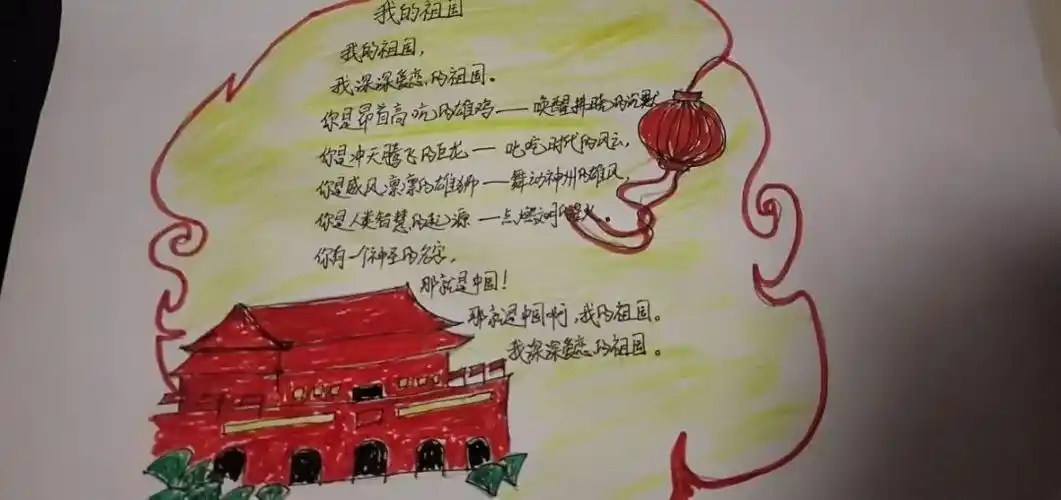 我的祖国
我的祖国，
我深深爱恋的祖国。
你是昂首高吭的雄鸡——唤醒拂晓的沉默
你是冲天腾飞的巨龙——叱咤时代的风云，
你是威风凛凛的雄狮——舞动神州的雄风，
你是人类智慧的起源——点燃文明的星火。
你有一个神圣的名字，
那就是中国！
那就是中国啊，我的祖国。
我深深爱恋的祖国。